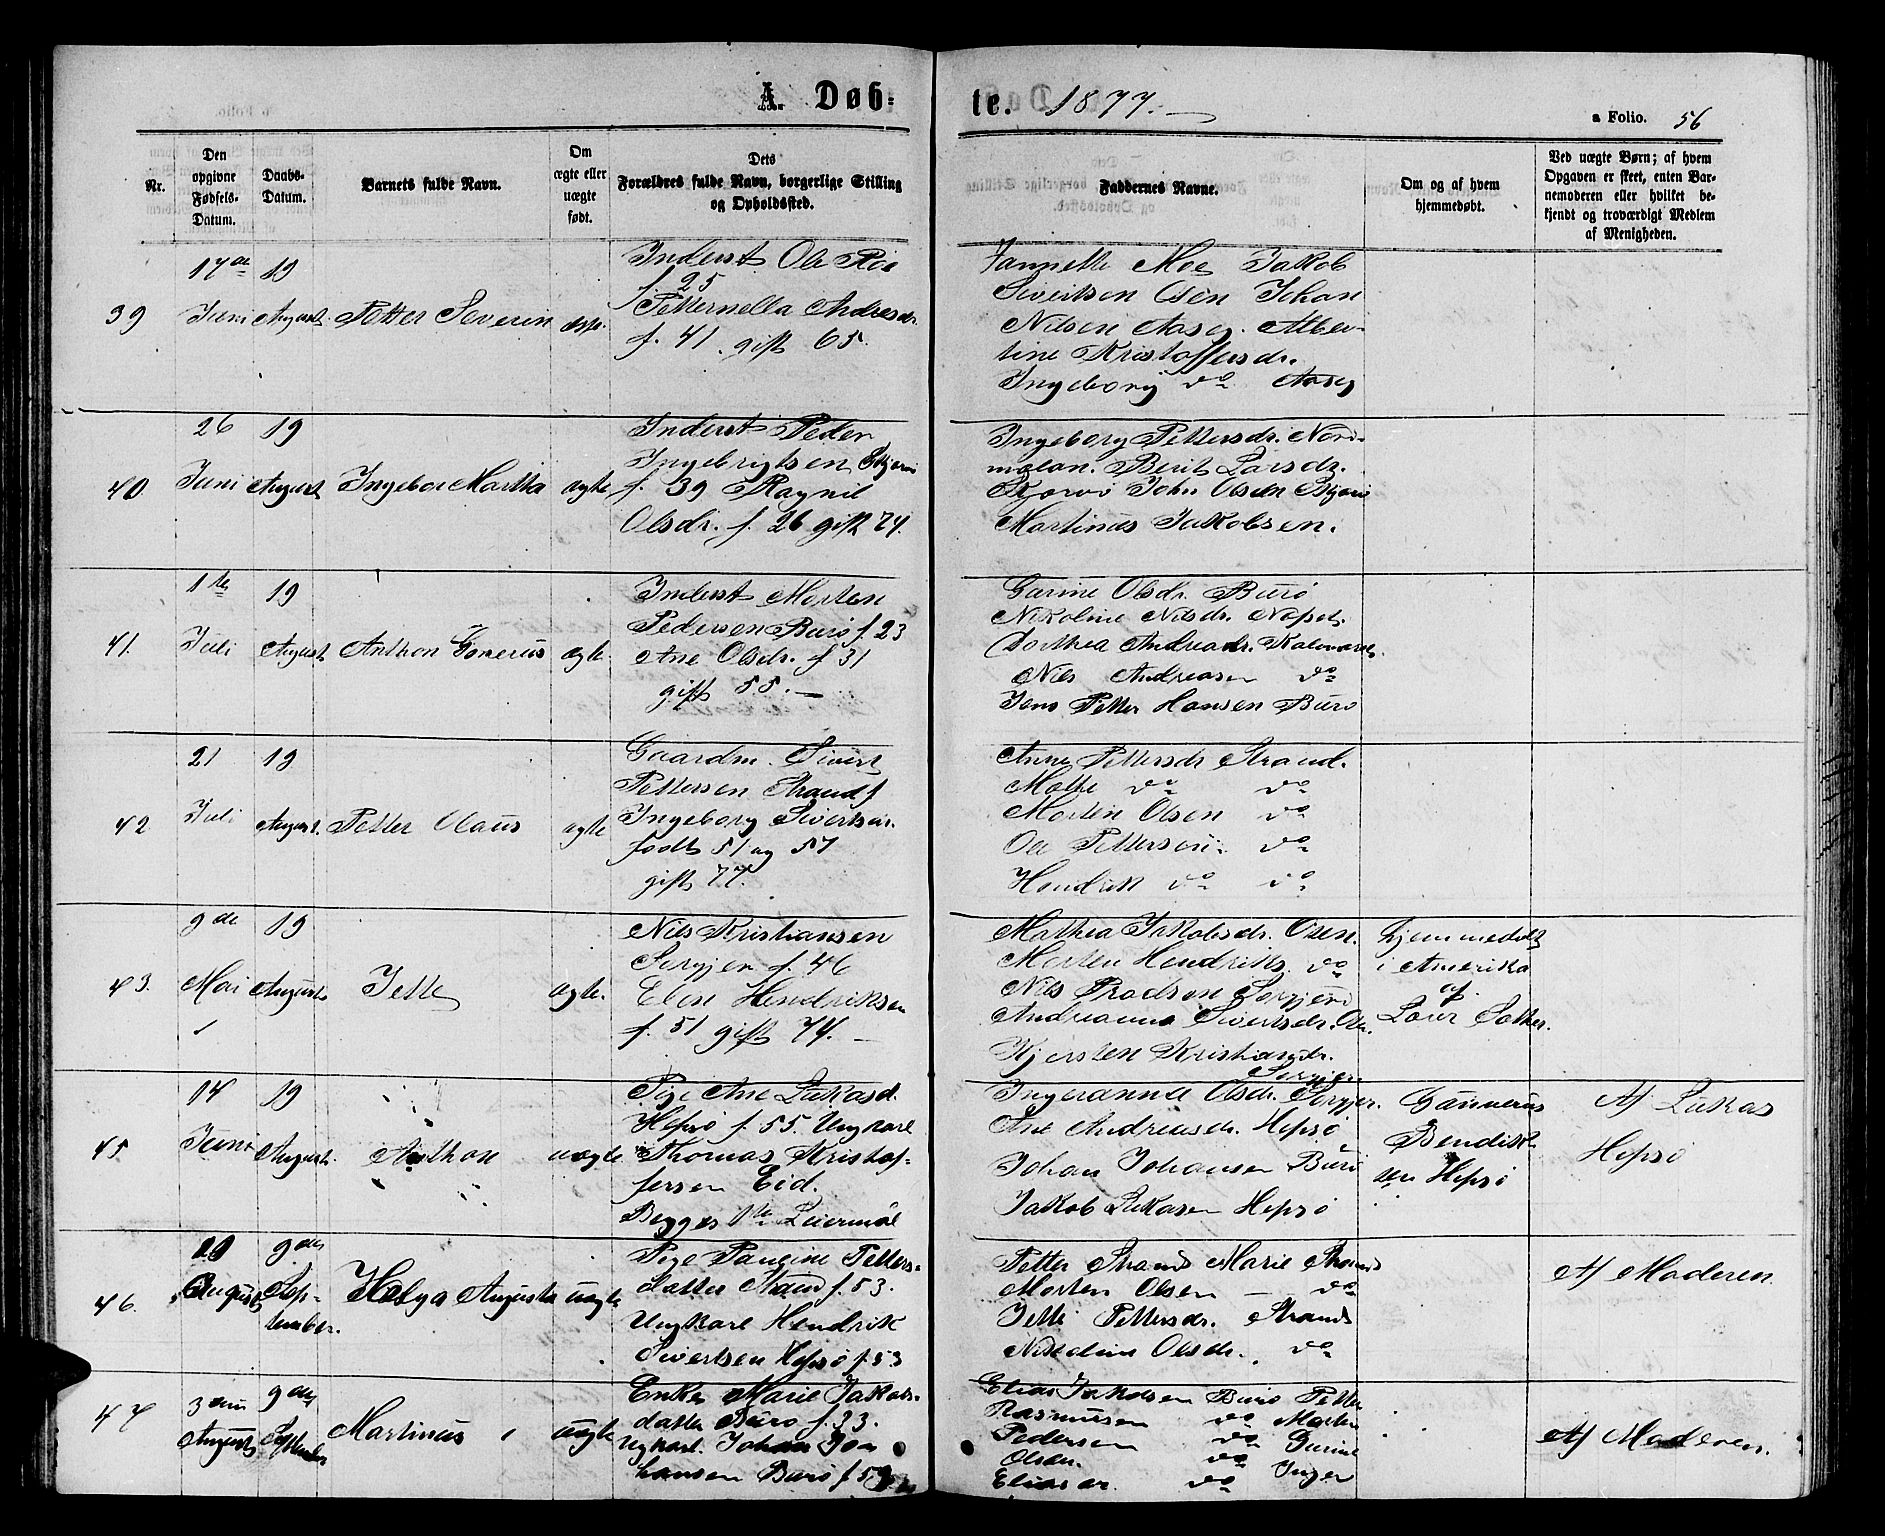 A. Døb-
te. 1877.
a Folio. 56
Nr.
Den opgivne Fødsels-Datum.
Daabs-Datum.
Barnets fulde Navn.
Om ægte eller uægte født.
Dets Forældres fulde Navn, borgerlige Stilling og Opholdssted.
Faddernes Navne.
Om og af hvem hjemmedøbt.
Ved uægte Børn; af hvem Opgaven er skeet, enten Barnemoderen eller hvilket bekjendt og troværdigt Medlem af Menigheden.
39
17de Juni
19 August
Petter Severin
Inderst Ole
f. 25
Petternella Andreasdr.
f. 41. gift 65.
Jannette Moe Jakob
Sivertsen Osen Johan
Nilsen Aaseg. Alber-
tine Kristoffersdr.
Ingeborg do Aaseg
40
26 Juni
19 August
Ingebor Martha
ægte
Inderst Peder
Ingebrigtsen
f. 39 Ragnil
Olsdr. f. 26 gift 74.
Ingeborg Pettersdr. Nord-
melan. Berit Larsdr.
John Olsen
Martinus Jakobsen.
41.
1te Juli
19 August
Anthon Gonerius
ægte
Inderst Morten
Pedersen Burø f. 23
Ane Olsdr. f. 31
gift 55.
Gurine Olsdr. Burø
Nikoline Nilsdr.
Dorthea Andreasdr.
Nils Andreasen do
Jens Petter Hansen Burø
42
21 Juli
19 August.
Petter Olaus
ægte
Gaardm. Sivert
Pettersen Strand f
Ingeborg Sivertsdr.
fødte 51 og 57
gift 77.
Anne Pettersdr Strand.
Malle do do
Morten Olsen do
Ole Pettersen do
Hendrik do do
43.
9de Mai
19 August
Jette
ægte.
Nils Kristiansen
Sørgjer f. 46
Elen Hendriksen
f. 51 gift 74.
Mathea Jakobsdr. Osen.
Morten Hendriks. do
Nils
Andreanna Sivertsdr. Osen.
Kjersten Kristiansdr.
Sørgjer.
hjemmedøbt
i Amerika
af
45
14 Juni
19 August.
Anthon
uægte
Pige Ane Lukasd.
Hepsø f. 55. Ungkarl
Thomas Kristof-
fersen Eid.
Begges 1te Leiermål
Ingeranna Olsdr. Sørgjer.
Ane Andreasdr. Hepsø
Johan Johansen Burø
Jakob Lukasen Hepsø
Gunnerus
Bendikt-
sen Hepsø
Af Lukas
Hepsø
46.
August
9de Sep-
tember.
Helga Augusta
uægte
Pige Pauline Petters-
datter Strand f. 53.
Ungkarl Hendrik
Sivertsen Hepsø f. 53
Petter Strand Marie Strand
Morten Olsen — do
Jette Pettersdr. Strand
Olsdr. do
Af Moderen
47
August
9de September
Martinus
uægte
Enke Marie Jakobs-
datter Burø f. 33.
Ugkarl. Johan Jo-
hansen Burø f. 53
Elias Jakobsen Burø Petter
Rasmusen do Morten
Pedersen do Gurine
Olsen. do Inger
Eliasdr. do
Af Moderen.